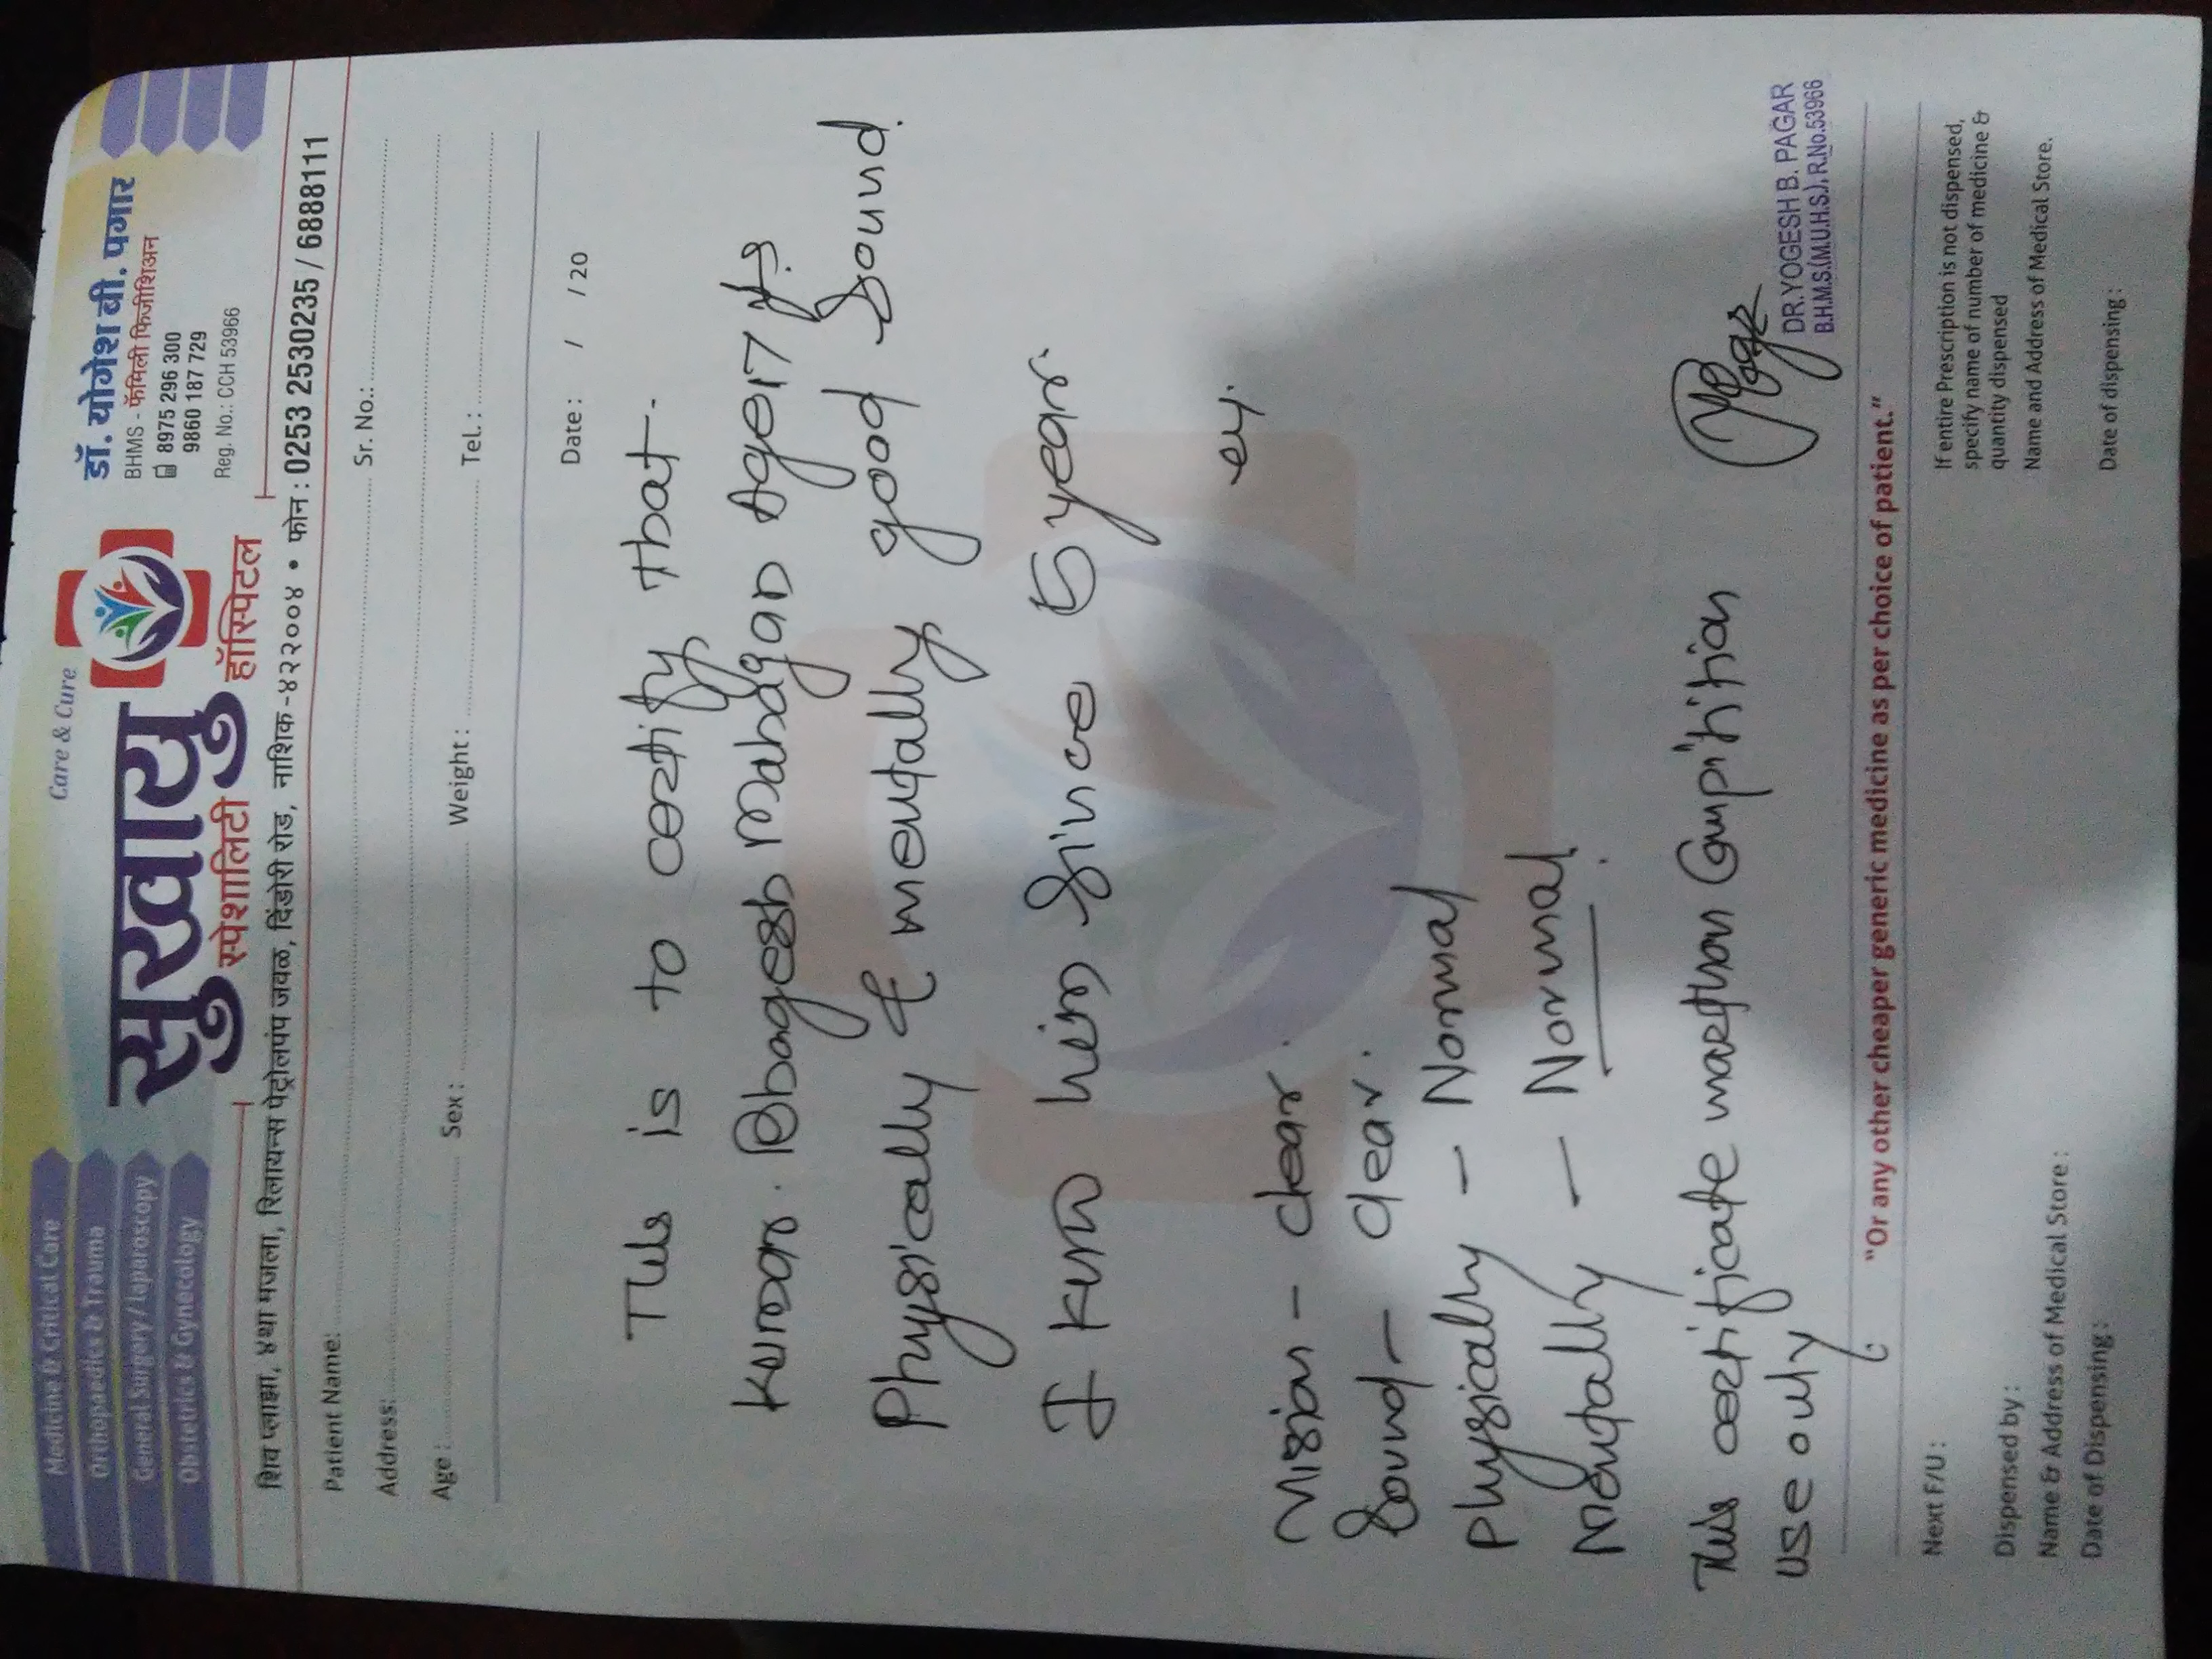 Medicine & Critical Care
Orthopaedics & Trauma
General Surgery / laparoscopy
Obstetrics & Gynecology
Care & Cure
सुखायु
स्पेशालिटी हॉस्पिटल
डॉ. योगेश बी. पगार
BHMS - फॅमिली फिजीशिअन
8975 296 300
9860 187 729
Reg. No.: CCH 53966
शिव प्लाझा, ४था मजला, रिलायन्स पेट्रोलपंप जवळ, दिंडोरी रोड, नाशिक -४२२००४ • फोन : 0253 2530235 / 6888111
Patient Name: Sr. No.:
Address:
Age : Sex : Weight : Tel. :
Date : / / 20
This is to certify that.
Kumar. Bhagesh Mahajan Age 17 yrs
Physically & mentally good Sound.
I know him since 5 year.
Vision - clear.
Sound - clear.
Physically - Normal
Mentally - Normal.
This certificate marthon Compitition
use only
DR.YOGESH B. PAGAR
B.H.M.S.(M.U.H.S.), R.No.53966
"Or any other cheaper generic medicine as per choice of patient."
Next F/U :
Dispensed by :
Name & Address of Medical Store :
Date of Dispensing :
If entire Prescription is not dispensed,
specify name of number of medicine &
quantity dispensed
Name and Address of Medical Store.
Date of dispensing :